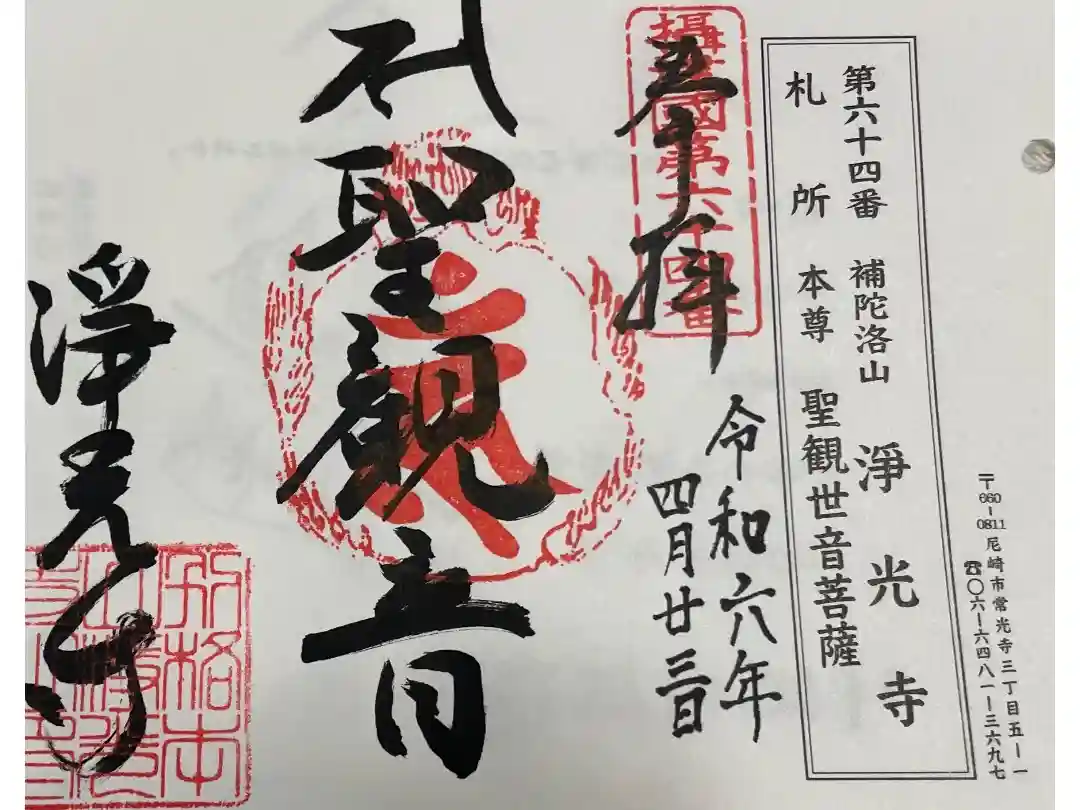 〒660-0811 尼崎市常光寺三丁目五ー一
☎〇六ー六四八一ー三六九七
第六十四番 補陀洛山 淨光寺
札所本尊 聖観世音菩薩
攝津國第六十四番
奉拝
令和六年
四月廿三日
聖観音
淨光寺